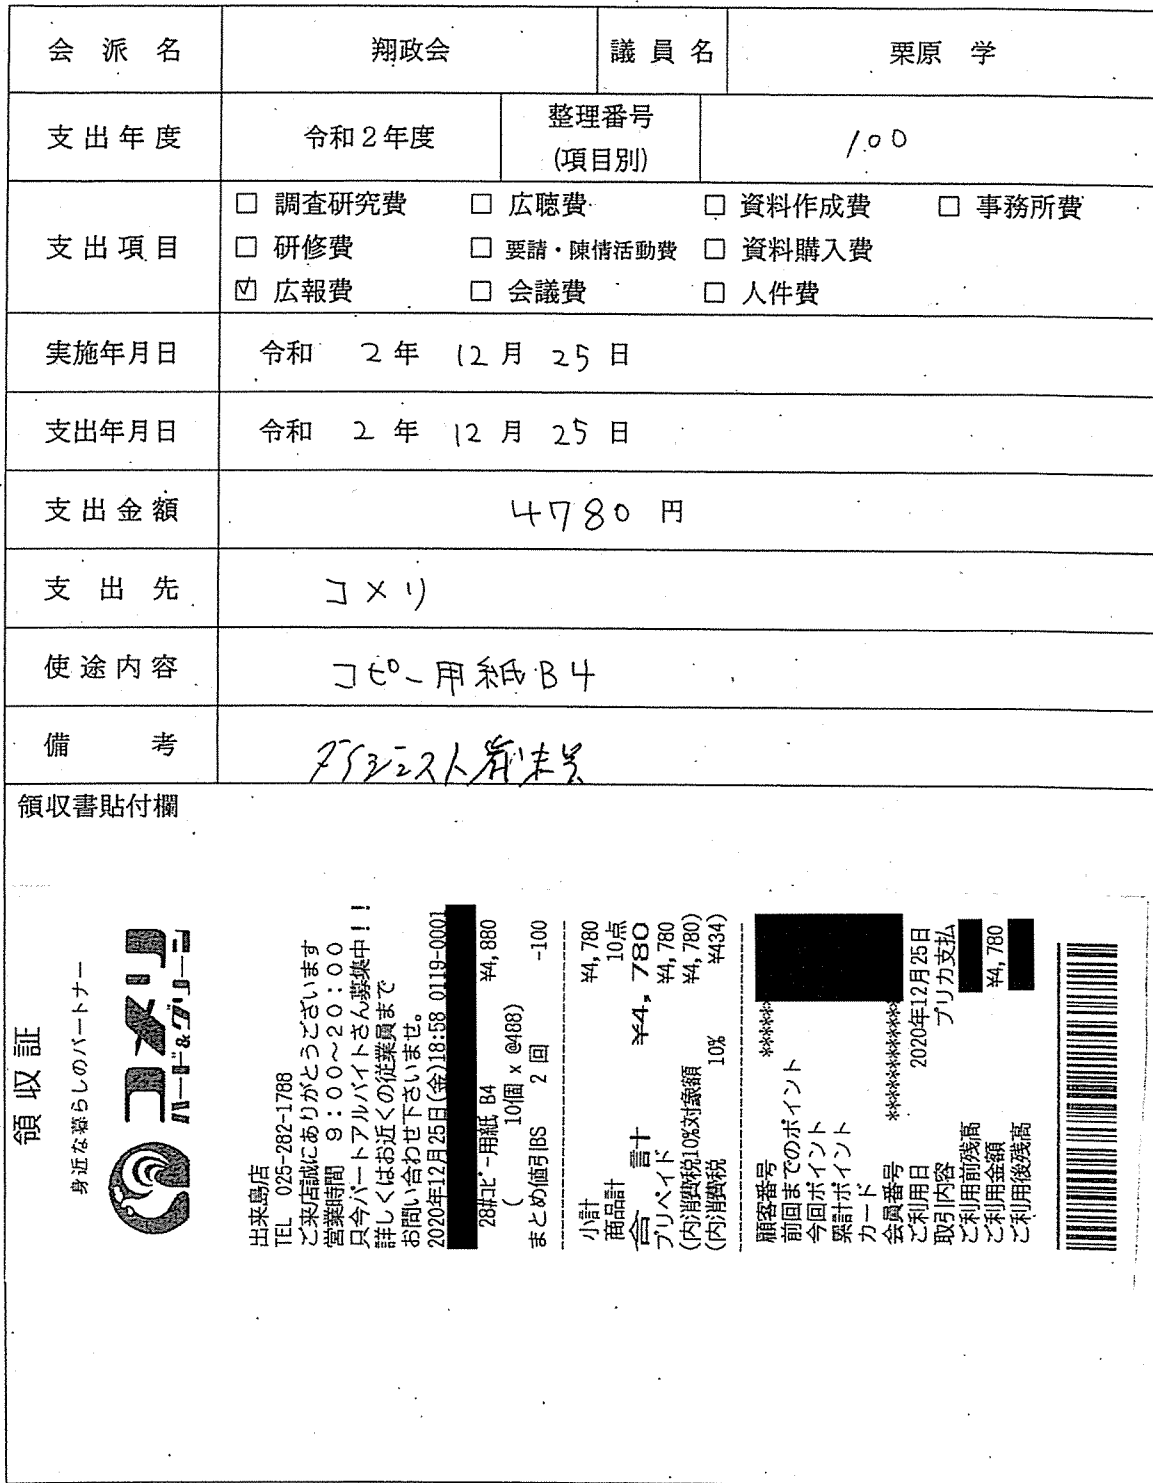 会派名 翔政会 議員名 栗原 学
支出年度 令和2年度 整理番号(項目別) 100
支出項目
□ 調査研究費 □ 広聴費 □ 資料作成費 □ 事務所費
□ 研修費 □ 要請・陳情活動費 □ 資料購入費
☑ 広報費 □ 会議費 □ 人件費
実施年月日 令和 2年 12月 25日
支出年月日 令和 2年 12月 25日
支出金額 4780円
支出先 コメリ
使途内容 コピー用紙B4
備考
領収書貼付欄
領収証
身近な暮らしのパートナー
コメリ
ハード&グリーン
出来島店
TEL 025-282-1788
ご来店誠にありがとうございます
営業時間 9:00〜20:00
只今パートアルバイトさん募集中!!
詳しくはお近くの従業員まで
お問い合わせ下さいませ。
2020年12月25日(金)18:58 0119-0001
28#コピー用紙 B4 ¥4,880
( 10個 x @488)
まとめ値引BS 2回 -100
小計 ¥4,780
商品計 10点
合計 ¥4,780
プリペイド ¥4,780
(内消費税10%対象額 ¥4,780)
(内消費税 10% ¥434)
顧客番号 ******
前回までのポイント
今回ポイント
累計ポイント
カード
会員番号 ************
ご利用日 2020年12月25日
取引内容 プリカ支払
ご利用前残高
ご利用金額 ¥4,780
ご利用後残高